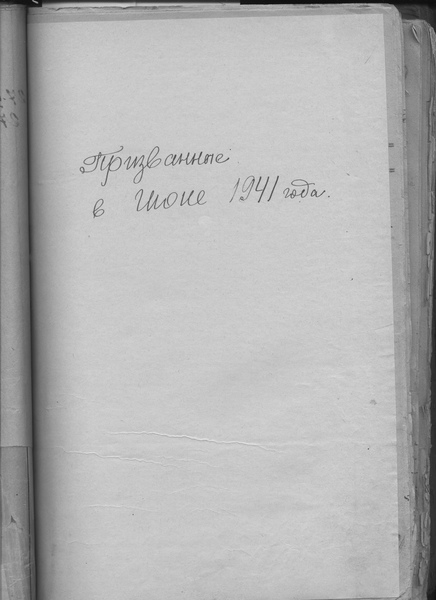 Призванные
в июне 1941 года.